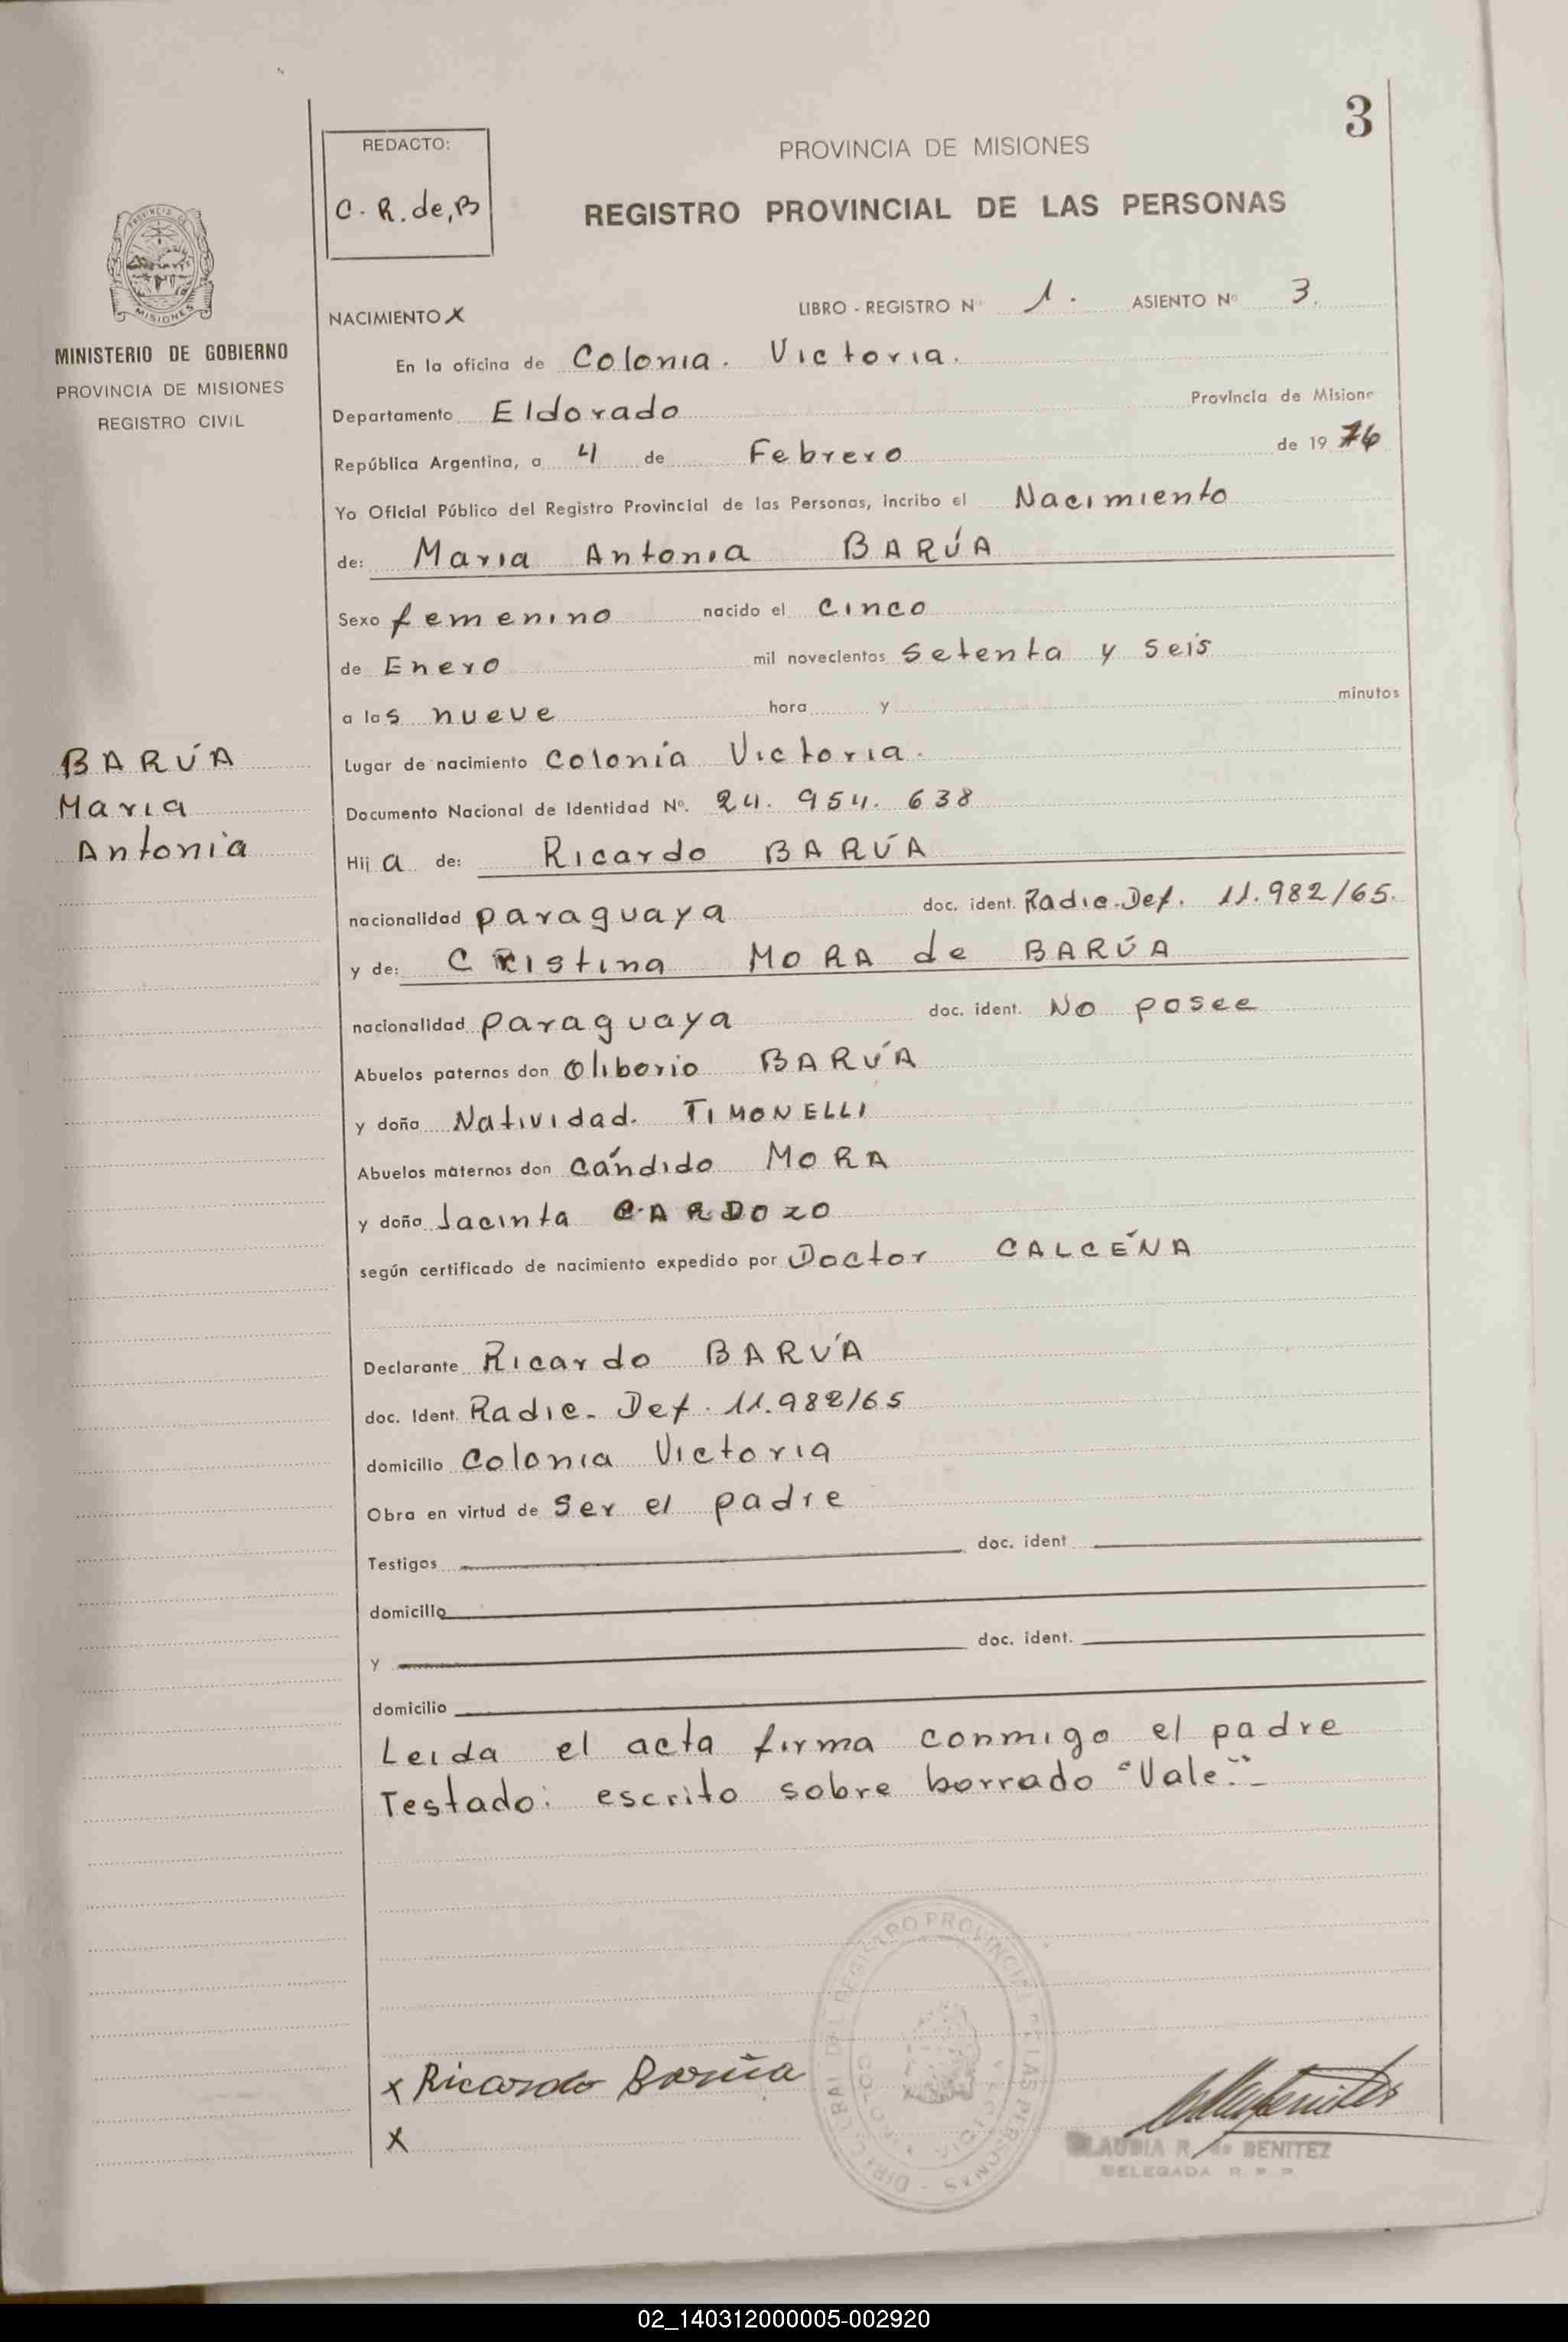 3
REDACTO:
C. R. de, B
PROVINCIA DE MISIONES
REGISTRO PROVINCIAL DE LAS PERSONAS
MISIONES
MINISTERIO DE GOBIERNO
PROVINCIA DE MISIONES
REGISTRO CIVIL
NACIMIENTO X LIBRO - REGISTRO Nº 1. ASIENTO Nº 3.
En la oficina de Colonia. Victoria.
Departamento Eldorado Provincia de Misione
República Argentina, a 4 de Febrero de 19 76
Yo Oficial Público del Registro Provincial de las Personas, incribo el Nacimiento
de: Maria Antonia BARÚA
Sexo femenino nacido el cinco
de Enero mil novecientos setenta y seis
a las nueve hora y minutos
BARÚA
Maria
Antonia
Lugar de nacimiento Colonía Victoria.
Documento Nacional de Identidad Nº. 24. 954. 638
Hij a de: Ricardo BARÚA
nacionalidad paraguaya doc. ident. Radic. Def. 11.982/65.
y de: Cristina MORA de BARÚA
nacionalidad paraguaya doc. ident. No posee
Abuelos paternos don Oliborio BARÚA
y doña Natividad. TIMONELLI
Abuelos maternos don Cándido MORA
y doña Jacinta CARDOZO
según certificado de nacimiento expedido por Doctor CALCÉNA
Declarante Ricardo BARÚA
doc. Ident. Radic- Def. 11.982/65
domicilio Colonia Victoria
Obra en virtud de Ser el padre
Testigos doc. ident
domicilio
y doc. ident.
domicilio
Leida el acta firma conmigo el padre
Testado: escrito sobre borrado "Vale".-
x Ricardo Barúa
x
DIR. GRAL DEL REGISTRO PROVINCIAL DE LAS PERSONAS
COLONIA VICTORIA
CLAUDIA R. de BENITEZ
DELEGADA R. P. P.
02_140312000005-002920